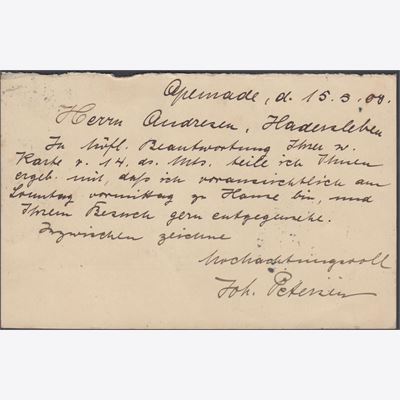 Apenrade, d. 15.3.08.
Herrn Andresen, Hadersleben
In höfl. Beantwortung Ihrer w.
Karte v. 14. ds. Mts. teile ich Ihnen
ergeb. mit, daß ich voraussichtlich am
Sonntag vormittag zu Hause bin, und
Ihrem Besuch gern entgegensehe.
Inzwischen zeichne
Hochachtungsvoll
Joh. Petersen